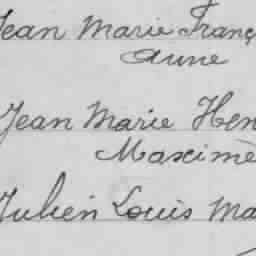 Jean Marie Franç
Anne
Jean Marie Hen
Maxime
Julien Louis Ma